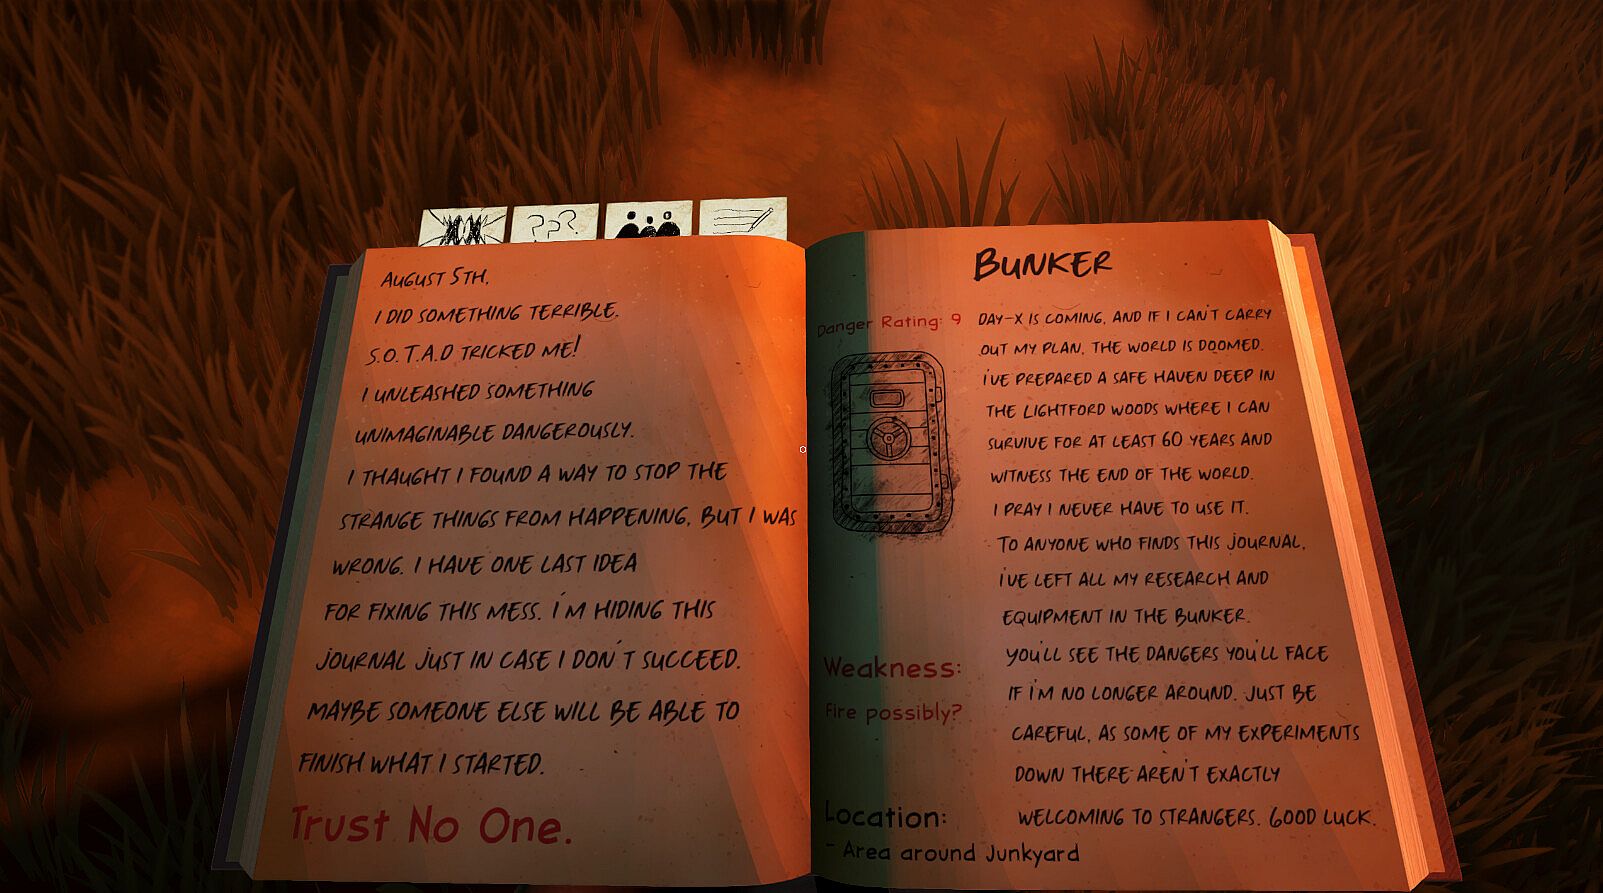 ???
AUGUST 5TH,
I DID SOMETHING TERRIBLE.
S.O.T.A.D TRICKED ME!
I UNLEASHED SOMETHING
UNIMAGINABLE DANGEROUSLY.
I THAUGHT I FOUND A WAY TO STOP THE
STRANGE THINGS FROM HAPPENING, BUT I WAS
WRONG. I HAVE ONE LAST IDEA
FOR FIXING THIS MESS. I'M HIDING THIS
JOURNAL JUST IN CASE I DON'T SUCCEED.
MAYBE SOMEONE ELSE WILL BE ABLE TO
FINISH WHAT I STARTED.
Trust No One.
BUNKER
Danger Rating: 9
DAY-X IS COMING, AND IF I CAN'T CARRY
OUT MY PLAN, THE WORLD IS DOOMED.
I'VE PREPARED A SAFE HAVEN DEEP IN
THE LIGHTFORD WOODS WHERE I CAN
SURVIVE FOR AT LEAST 60 YEARS AND
WITNESS THE END OF THE WORLD.
I PRAY I NEVER HAVE TO USE IT.
TO ANYONE WHO FINDS THIS JOURNAL,
I'VE LEFT ALL MY RESEARCH AND
EQUIPMENT IN THE BUNKER.
YOU'LL SEE THE DANGERS YOU'LL FACE
IF I'M NO LONGER AROUND. JUST BE
CAREFUL, AS SOME OF MY EXPERIMENTS
DOWN THERE AREN'T EXACTLY
WELCOMING TO STRANGERS. GOOD LUCK.
Weakness:
Fire possibly?
Location:
- Area around Junkyard